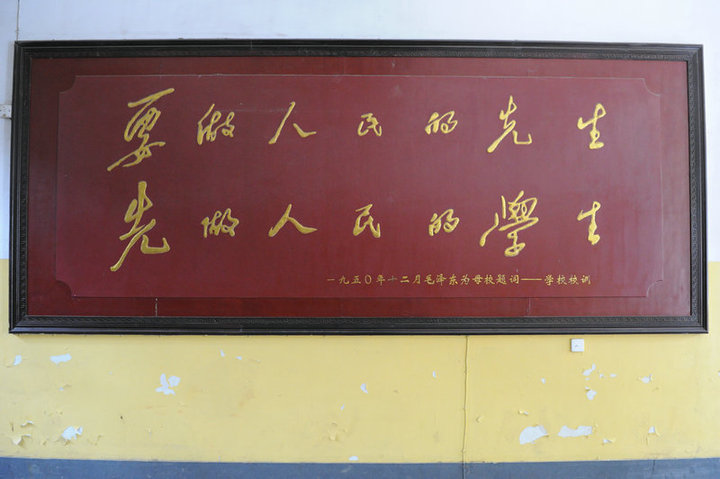 要做人民的先生
先做人民的學生
一九五〇年十二月毛泽东为母校题词——学校校训